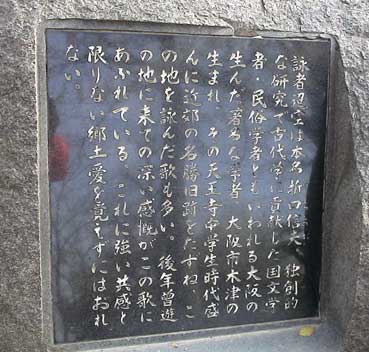 詠者迢空は本名折口信夫、独創的
な研究で古代学に貢献した国文学
者・民俗学者ともいわれる大阪の
生んだ著名な学者 大阪市木津の
生まれ、その天王寺中学生時代盛
んに近郊の名勝旧跡をたずね、こ
の地を詠んだ歌も多い。後年曾遊
の地に来ての深い感慨がこの歌に
あふれている。これに強い共感と
限りない郷土愛を覚えずにはおれ
ない。